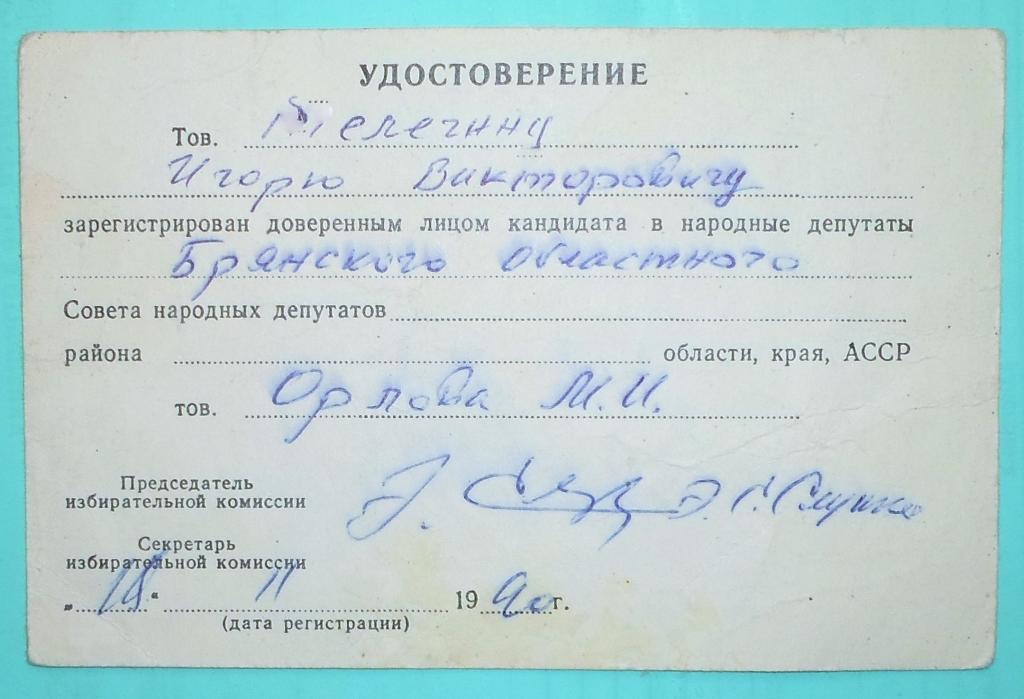 УДОСТОВЕРЕНИЕ
Тов. Телегину
Игорю Викторовичу
зарегистрирован доверенным лицом кандидата в народные депутаты
Брянского областного
Совета народных депутатов
района области, края, АССР
тов. Орлова М.И.
Председатель
избирательной комиссии
Секретарь
избирательной комиссии
„ “ 11 1990 г.
(дата регистрации)